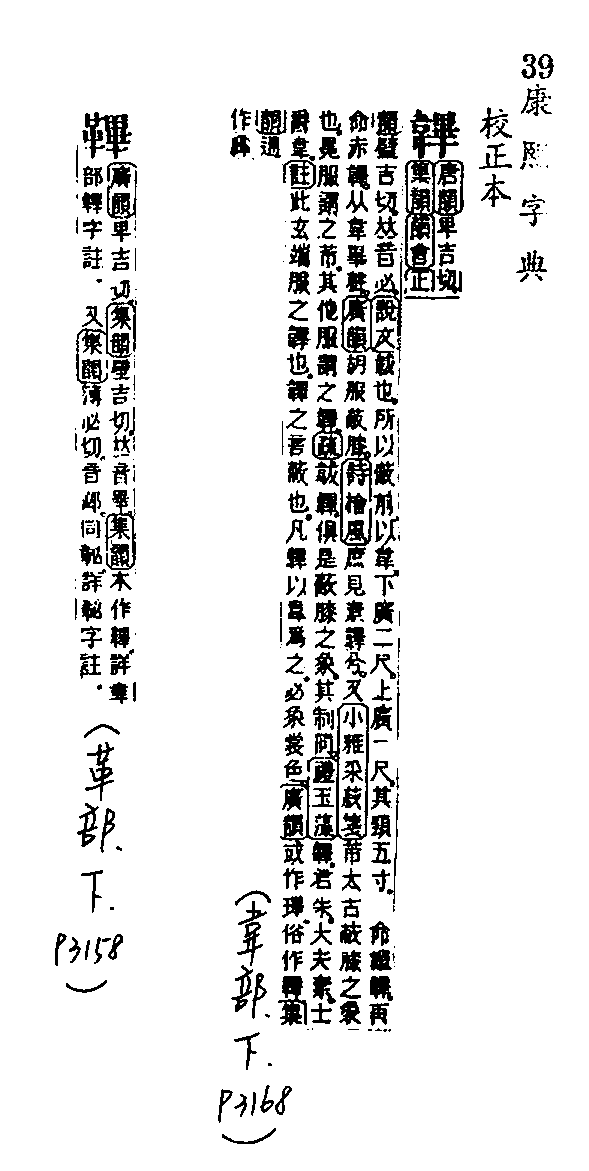 39
康熙字典
校正本
韠
唐韻卑吉切
集韻韻會正
韻壁吉切𠀤音必說文韍也所以蔽前以韋下廣二尺上廣一尺其頸五寸 命縕韠再
命赤韠从韋畢聲廣韻胡服蔽膝詩檜風庶見素韠兮又小雅采菽箋芾太古蔽膝之象
也冕服謂之芾其他服謂之韠疏韍韠俱是蔽膝之象其制同禮玉藻韠君朱大夫素士
爵韋註此玄端服之韠也韠之言蔽也凡韠以韋爲之必象裳色廣韻或作 俗作 集
韻通
作
(韋部.下.
P3168)
廣韻卑吉切集韻壁吉切𠀤音畢集韻本作韠詳韋
部韠字註。又集韻薄必切音邲同 詳 字註。
(革部.下.
P3158)